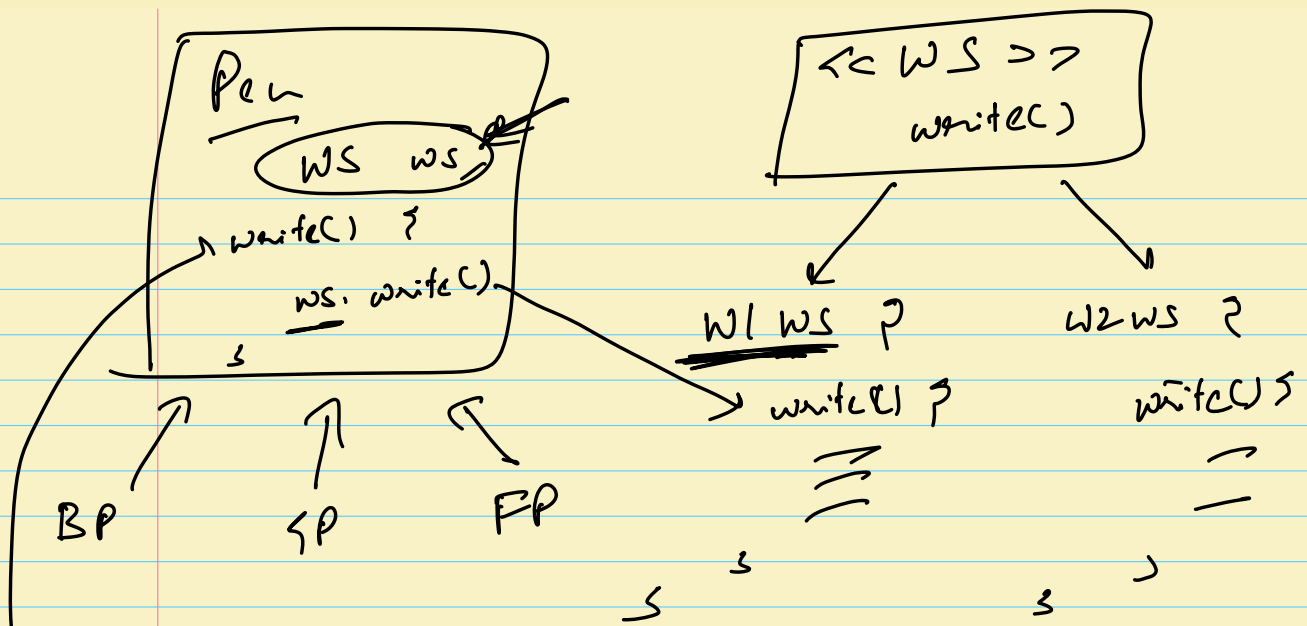 Pen
WS ws
write() {
ws. write()
}
BP GP FP
<< WS >>
write()
W1 WS {
write() {
}
}
W2 WS {
write() {
}
}